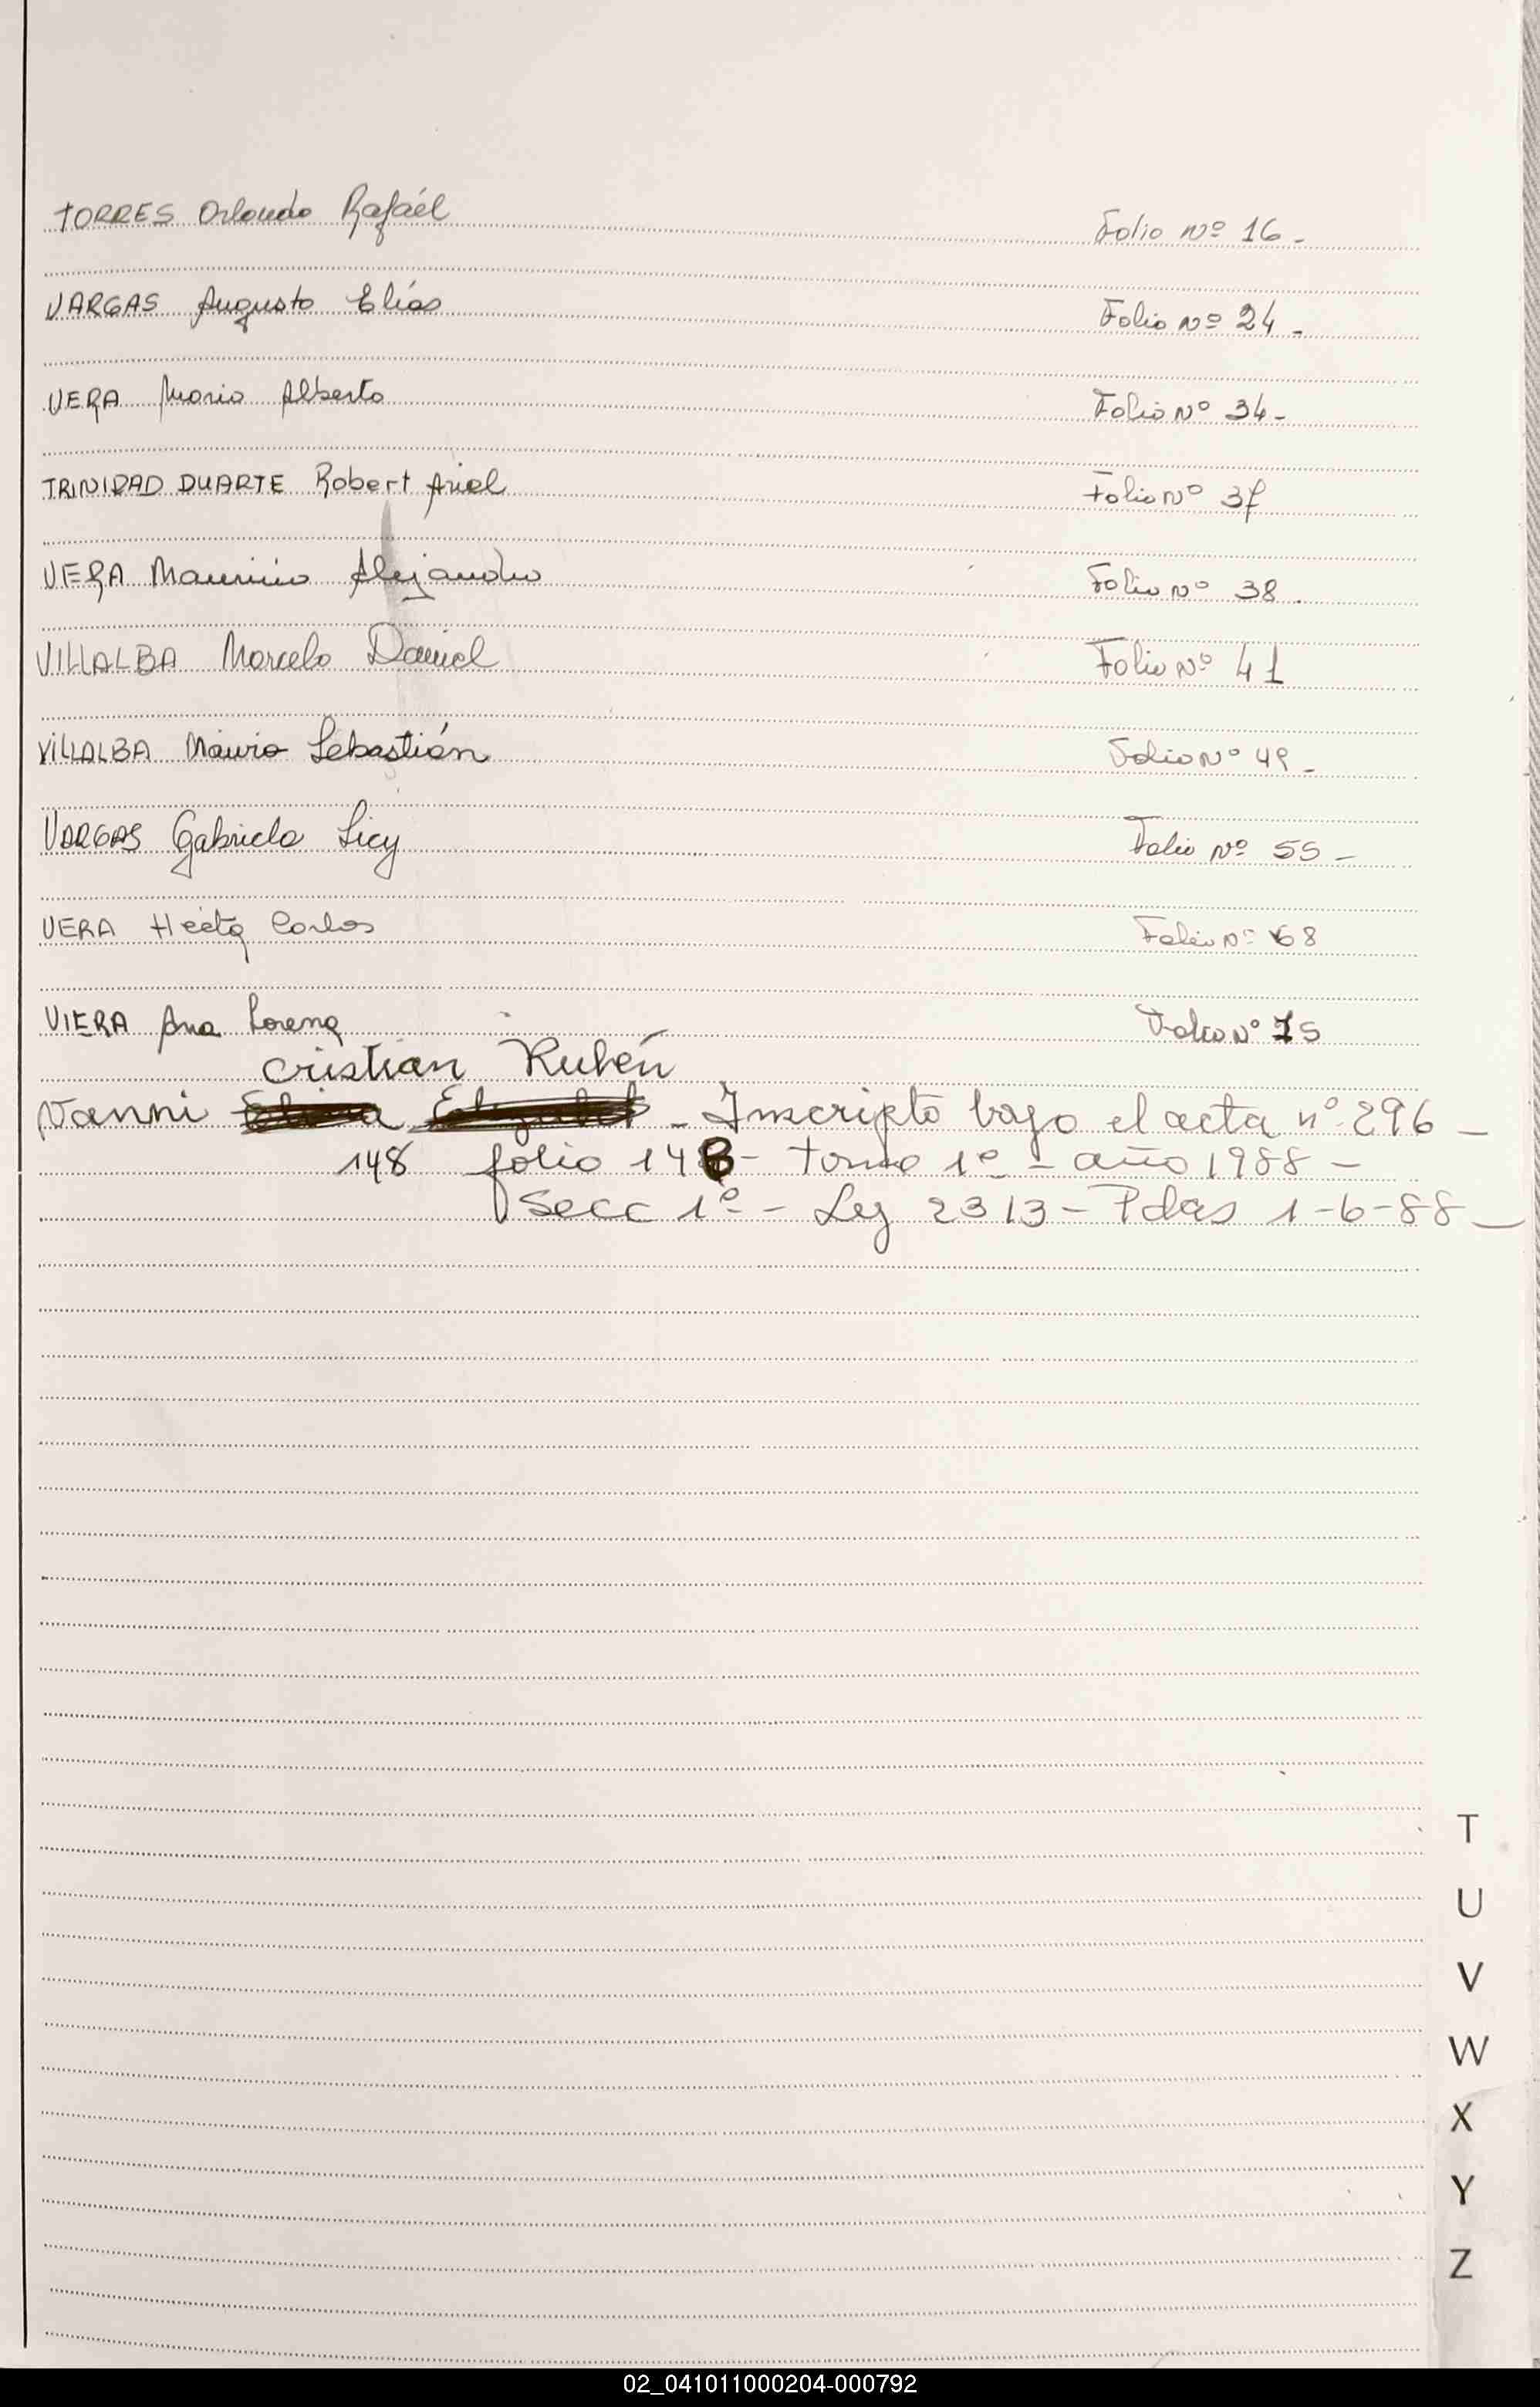 TORRES Orlando Rafaél Folio Nº 16-
VARGAS Augusto Elías Folio Nº 24-
VERA Mario Alberto Folio Nº 34-
TRINIDAD DUARTE Robert Ariel Folio Nº 37
VERA Mauricio Alejandro Folio Nº 38.
VILLALBA Marcelo Daniel Folio Nº 41
VILLALBA Mauro Sebastián Folio Nº 49-
VARGAS Gabriela Licy Folio Nº 55-
VERA Héctor Carlos Folio Nº 68
VIERA Ana Lorena Folio Nº 75
Cristian Rubén
Vanni - Inscripto bajo el acta nº 296-
148 folio 148- tomo 1º- año 1988-
Secc 1º- Ley 2313- Pdas 1-6-88-
T
U
V
W
X
Y
Z
02_041011000204-000792